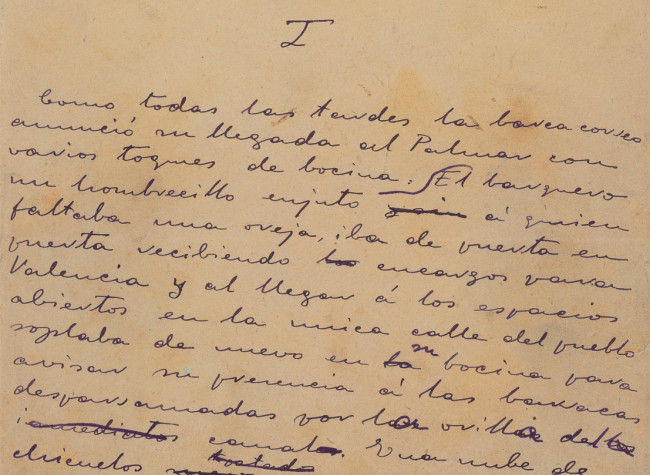 I
Como todas las tardes la barca correo
anunció su llegada al Palmar con
varios toques de bocina. El barquero
un hombrecillo enjuto á quien
faltaba una oreja, iba de puerta en
puerta recibiendo encargos para
Valencia y al llegar á los espacios
abiertos en la unica calle del pueblo
soplaba de nuevo en la su bocina para
avisar su presencia á las barracas
desparramadas por la orilla del
inmediatos canal. Una nube de
chicuelos tostado